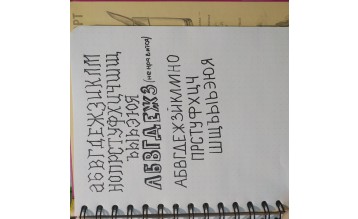 АБВГДЕЖЗИКЛМ
НОПРСТУФХЦЧШЩ
ЪЫЬЭЮЯ
АБВГДЕЖЗ (не нравится)
АБВГДЕЖЗЙКЛМНО
ПРСТУФХЦЧ
ШЩЪЫЬЭЮЯ